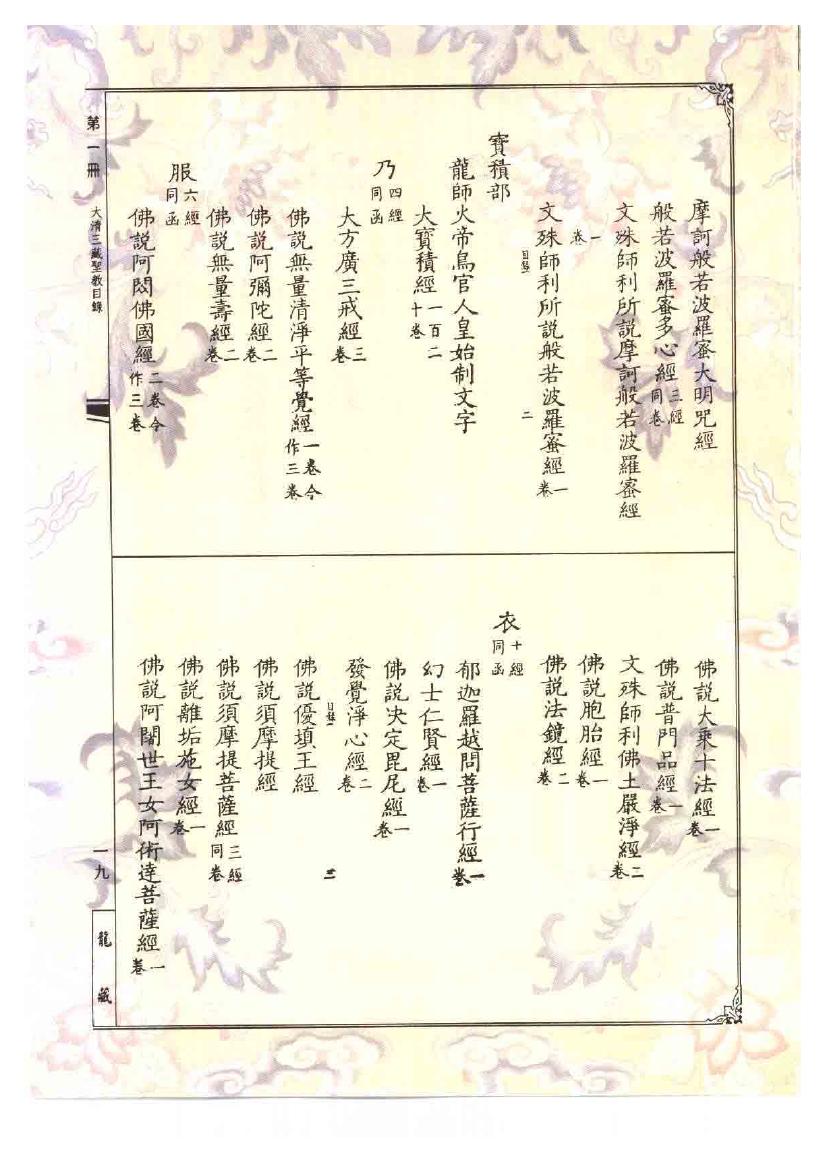 摩訶般若波羅蜜大明咒經
般若波羅蜜多心經三經同卷
文殊師利所說摩訶般若波羅蜜經
一卷
文殊師利所說般若波羅蜜經一卷
目錄 二
寶積部
龍師火帝鳥官人皇始制文字
大寶積經一百二十卷
乃四經同函
大方廣三戒經三卷
佛說無量清淨平等覺經一卷今作三卷
佛說阿彌陀經二卷
佛說無量壽經二卷
服六經同函
佛說阿閦佛國經二卷今作三卷
佛說大乘十法經一卷
佛說普門品經一卷
文殊師利佛土嚴淨經二卷
佛說胞胎經一卷
佛說法鏡經二卷
衣十經同函
郁迦羅越問菩薩行經一卷
幻士仁賢經一卷
佛說決定毘尼經一卷
發覺淨心經二卷
目錄 三
佛說優填王經
佛說須摩提經
佛說須摩提菩薩經三經同卷
佛說離垢施女經一卷
佛說阿闍世王女阿術達菩薩經一卷
第一冊 大清三藏聖教目錄
一九
龍藏